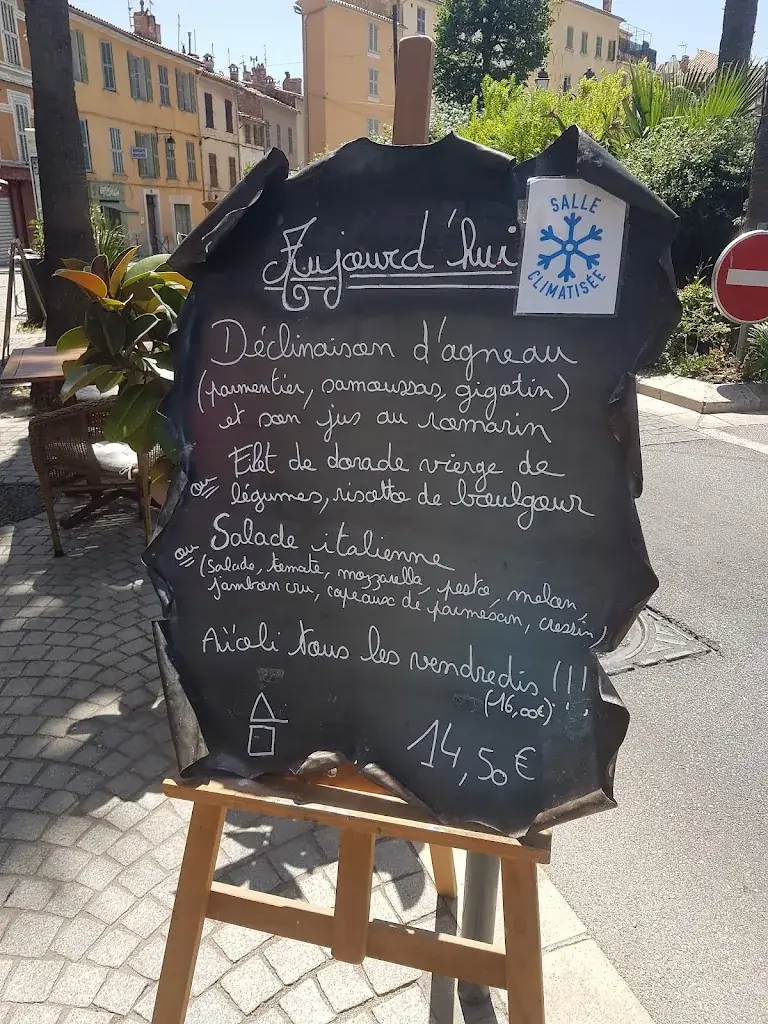 SALLE
CLIMATISÉE
Aujourd'hui
Déclinaison d'agneau
(parmentier, samoussas, gigotin)
et son jus au romarin
ou Filet de dorade vierge de
légumes, risotto de boulgour
ou Salade italienne
(salade, tomate, mozzarella, pesto, melon,
jambon cru, copeaux de parmesan, cressin)
Aïoli tous les vendredis !!!
(16,00€)
14,50€